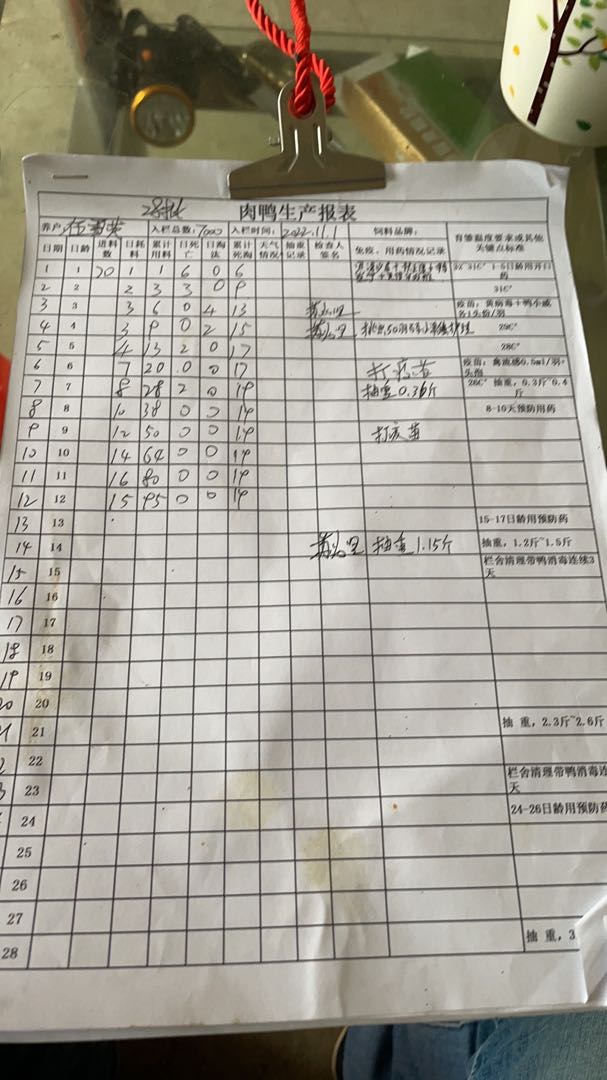 28批
肉鸭生产报表
养户: 入栏总数: 7000 入栏时间: 2022.11.1 饲料品牌:
日期 日龄 进料数 日耗料 累计用料 日死亡 日淘汰 累计死淘 天气情况 抽重记录 检查人签名 免疫、用药情况记录 育雏温度要求或其他关键点标准
1 1 70 1 1 6 0 6 1-5日龄用开口药
2 2 2 3 3 0 9 31C°
3 3 3 6 0 4 13 疫苗:黄病毒+鸭小威各1头份/羽
4 4 3 9 0 2 15 29C°
5 5 4 13 2 0 17 28C°
6 6 7 20 0 0 17 打疫苗 疫苗:禽流感0.5ml/羽
7 7 8 28 2 0 19 抽重0.36斤 26C° 抽重,0.3斤~0.4斤
8 8 10 38 0 0 19 8-10天预防用药
9 9 12 50 0 0 19 打疫苗
10 10 14 64 0 0 19
11 11 16 80 0 0 19
12 12 15 95 0 0 19
13 13 15-17日龄用预防药
14 14 抽重1.15斤 抽重,1.2斤~1.5斤
15 15 栏舍清理带鸭消毒连续3天
16 16
17 17
18 18
19 19
20 20
21 21 抽 重,2.3斤~2.6斤
22
23 栏舍清理带鸭消毒连天
24 24-26日龄用预防药
25
26
27
28 抽 重,3